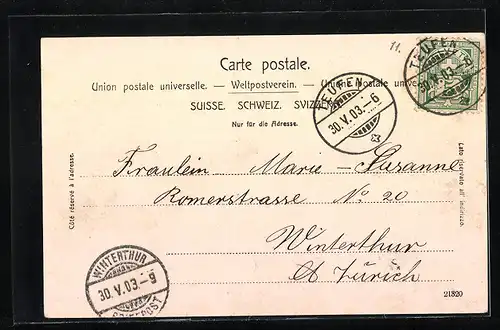 11.
Carte postale.
Union postale universelle. — Weltpostverein. — Unione postale universale
SUISSE. SCHWEIZ. SVIZZERA.
Nur für die Adresse.
TEUFEN
30.V.03.-6
TEUFEN
30.V.03.-6
Côté réservé à l'adresse.
Lato riservato all' indirizzo.
Fräulein Marie-Susanne
Romerstrasse No 20
Winterthur
Ct Zürich
WINTERTHUR
30.V.03.-9
BRIEFPOST
21820